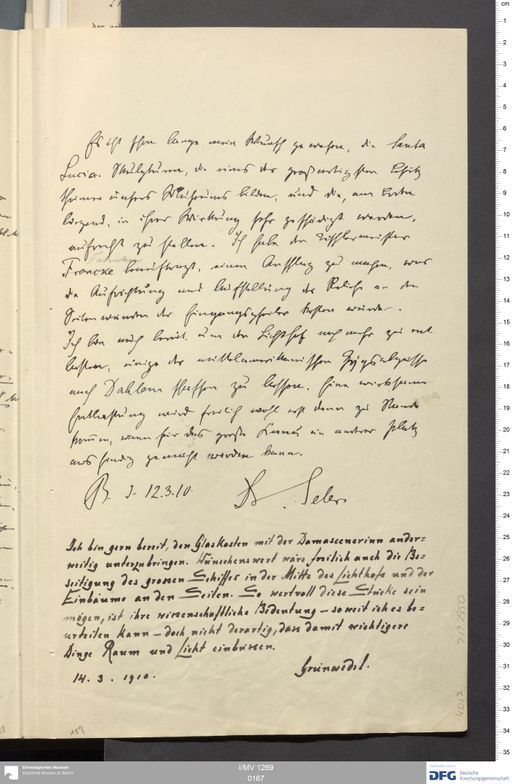 Es ist schon lange mein Wunsch gewesen, die Santa
Lucia-Skulpturen, die eines der großartigsten Besitz-
thümer unseres Museums bilden, und die, am Boden
liegend, in ihrer Wirkung sehr geschädigt werden,
aufrecht zu stellen. Ich habe den Tischlermeister
Francke beauftragt, einen Anschlag zu machen, was
die Aufrichtung und Aufstellung der Reliefs an den
Seitenwänden der Eingangshalle kosten würde.
Ich bin auch bereit, um den Lichthof noch mehr zu ent-
lasten, einige der mittelamerikanischen Gypsabgüsse
nach Dahlem schaffen zu lassen. Eine wirksame
Entlastung wird freilich wohl erst dann zu Stande
kommen, wenn für das große Kanu ein anderer Platz
ausfindig gemacht werden kann.
B. d. 12.3.10. Dr. Seler
Ich bin gern bereit, den Glaskasten mit der Damascenerinn ander-
weitig unterzubringen. Wünschenswert wäre freilich auch die Be-
seitigung des grossen Schiffes in der Mitte des Lichthofs und der
Einbäume an den Seiten. So wertvoll diese Stücke sein
mögen, ist ihre wissenschaftliche Bedeutung – soweit ich es be-
urteilen kann – doch nicht derartig, dass damit wichtigere
Dinge Raum und Licht einbüssen.
14. 3. 1910. Grünwedel.
159
I/MV 1269
0167
Ethnologisches Museum
Staatliche Museen zu Berlin
DFG Deutsche
Forschungsgemeinschaft